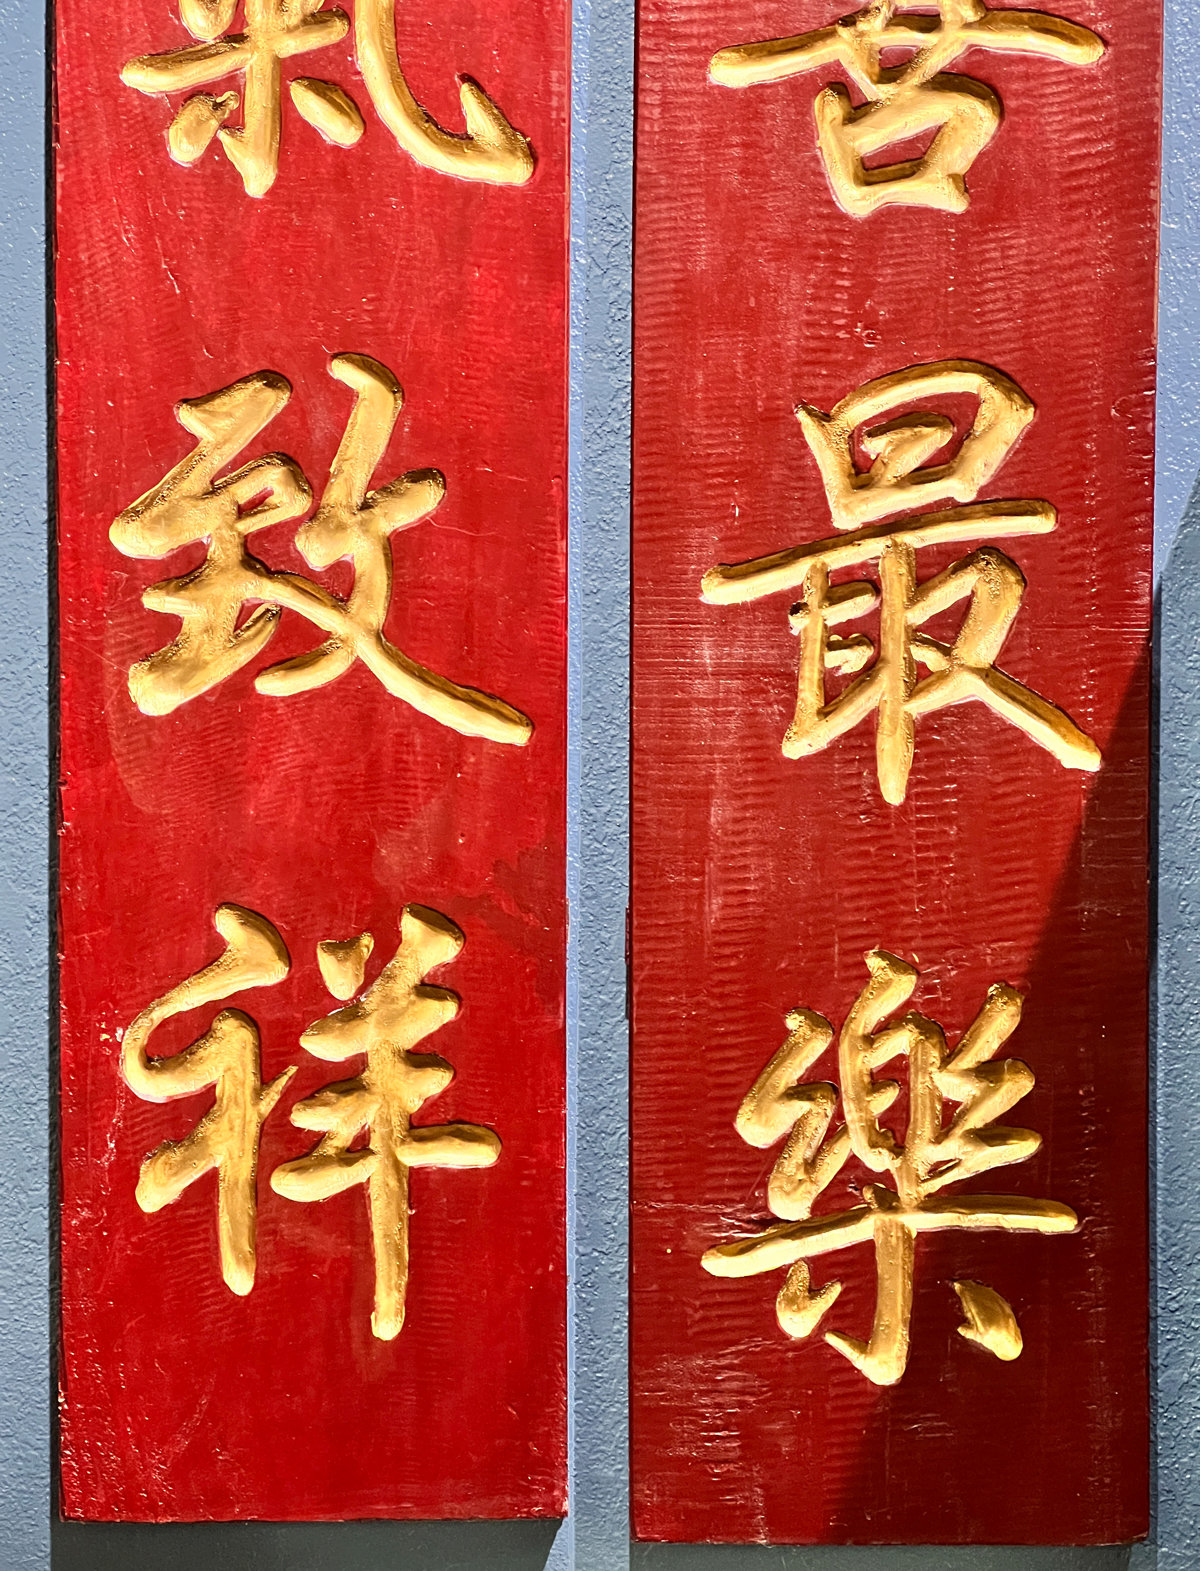 善最樂
氣致祥